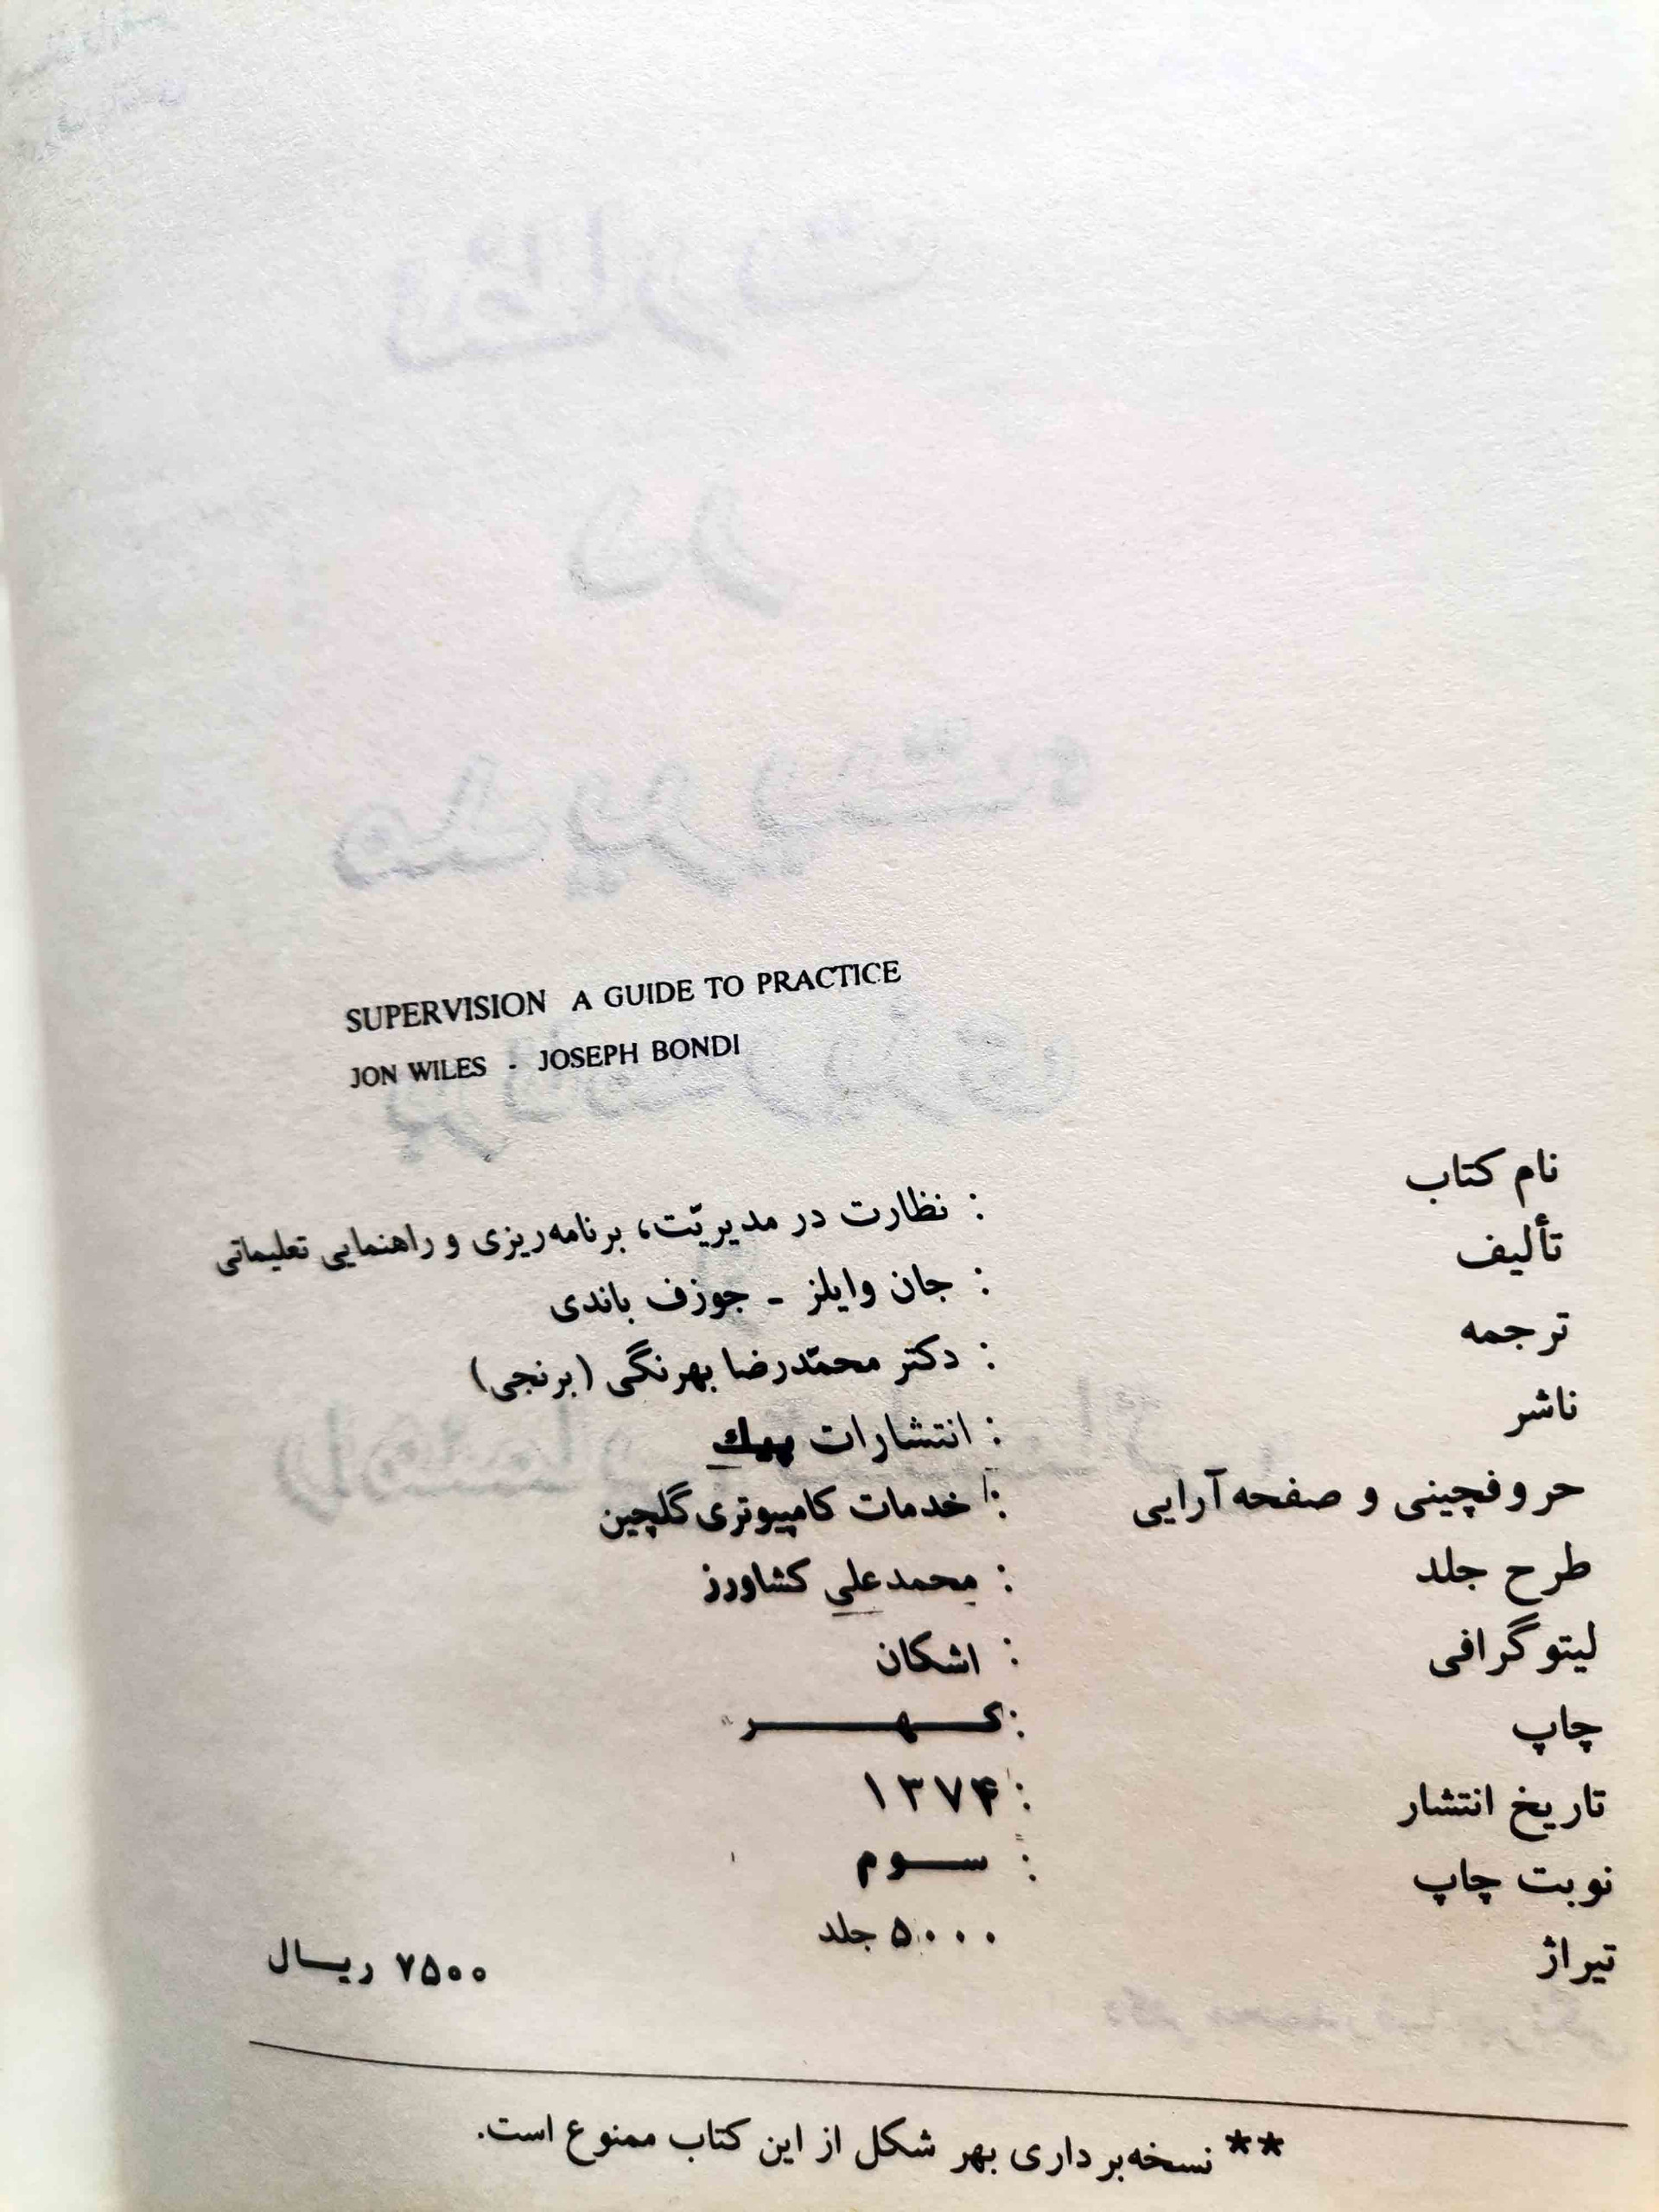 SUPERVISION A GUIDE TO PRACTICE
JON WILES - JOSEPH BONDI
نام کتاب : نظارت در مدیریّت، برنامه‌ریزی و راهنمایی تعلیماتی
تألیف : جان وایلز - جوزف باندی
ترجمه : دکتر محمّدرضا بهرنگی (برنجی)
ناشر : انتشارات پیك
حروفچینی و صفحه‌آرایی : خدمات کامپیوتری گلچین
طرح جلد : محمدعلی کشاورز
لیتوگرافی : اشکان
چاپ :
تاریخ انتشار : ۱۳۷۴
نوبت چاپ : سوم
تیراژ ۵۰۰۰ جلد ۷۵۰۰ ریال
** نسخه‌برداری بهر شکل از این کتاب ممنوع است.